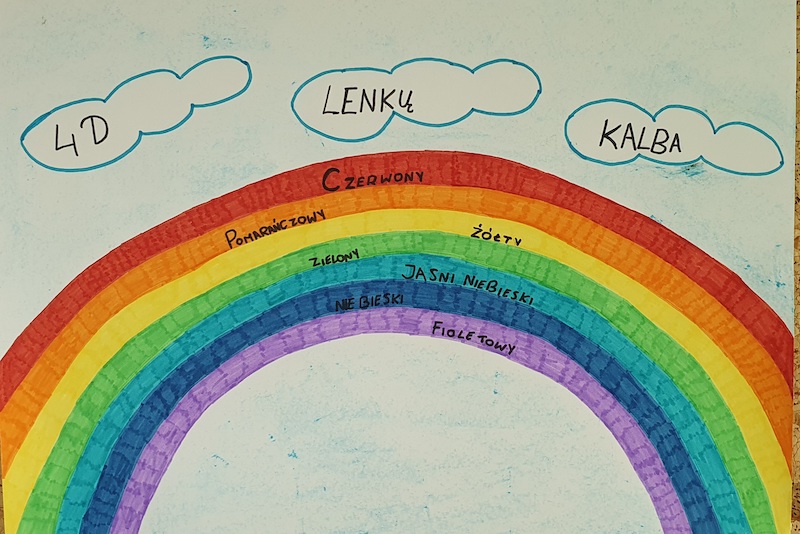 4D
LENKŲ
KALBA
CZERWONY
POMARAŃCZOWY
ŻÓŁTY
ZIELONY
JAŚNI NIEBIESKI
NIEBIESKI
FIOLETOWY